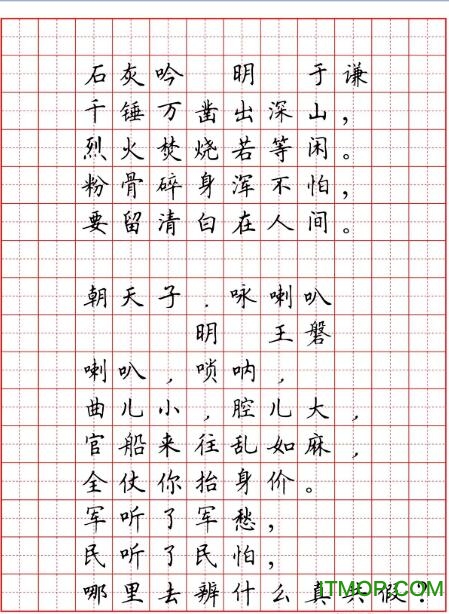 石灰吟 明 于谦
千锤万凿出深山，
烈火焚烧若等闲。
粉骨碎身浑不怕，
要留清白在人间。
朝天子．咏喇叭
明 王磐
喇叭，唢呐，
曲儿小，腔儿大，
官船来往乱如麻，
全仗你抬身价。
军听了军愁，
民听了民怕，
哪里去辨什么真共假？
ITMOP.COM